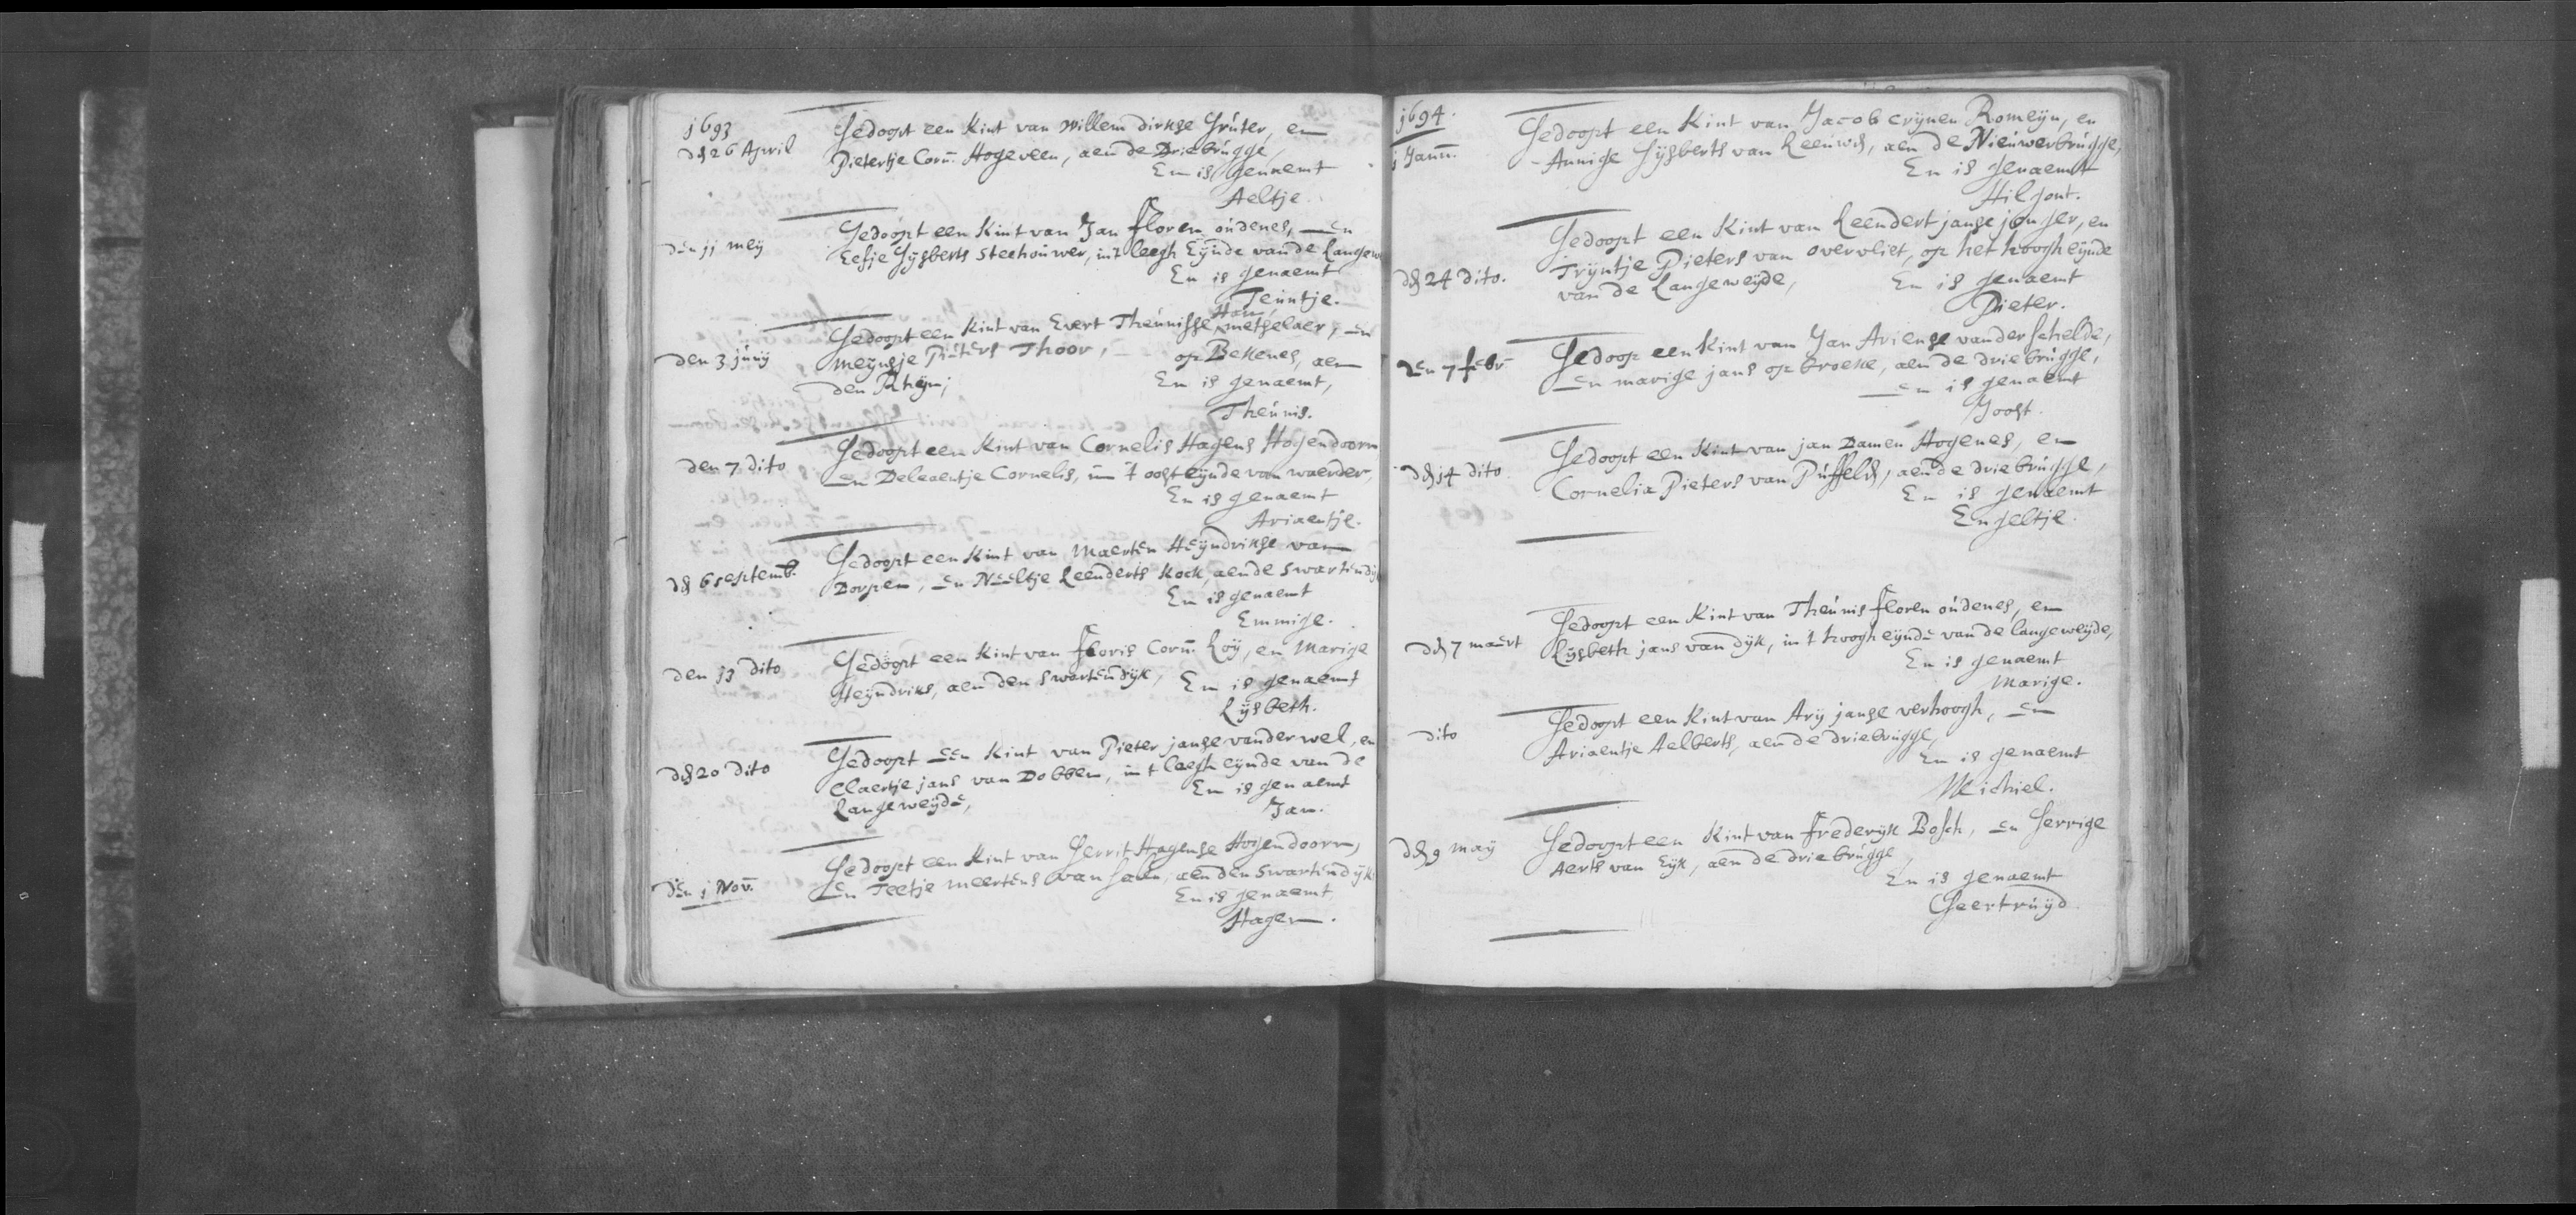 1693
d 26 April
Gedoopt een Kint van Willem dirkse Gruter, en
Pietertje Corn. Hogeveen, aen de Driebrugge,
En is genaemt
Aeltje.
den 11 meij
Gedoopt een Kint van Jan Floren oudenes, en
Eefje Gijsberts Steehouwer, in 't leegh Eijnde vande Langew
En is genaemt
Teuntje.
Ham,
den 3 junij
Gedoopt een Kint van Evert Theunisse metselaer, en
meijnsje Pieters Thoor, op Bekenes, aen
den Rhijn; En is genaemt,
Theunis.
den 7 dito
Gedoopt een Kint van Cornelis Hagens Hogendoorn
en Deliaentje Cornelis, in 't oosteijnde van waerder,
En is genaemt
Ariaentje.
d 6 septemb.
Gedoopt een Kint van Maerten Heijndrikse van
Dorpen, en Neeltje Leenderts Kock, aen de Swartendij
En is genaemt
Emmige.
den 13 dito
Gedoopt een Kint van Floris Corn. Roij, en Marige
Heijndriks, aen den Swartendijk, En is genaemt
Lijsbeth.
d 20 dito
Gedoopt een Kint van Pieter janse vander wel, en
Claertje jans van Dobben, in t laegh eijnde van de
Langeweijde, En is genaemt
Jan.
den 1 Nov.
Gedoopt een Kint van Gerrit Hagense Hogendoorn,
en Teetje meertens van Galen, aen den Swartendijk
En is genaemt
Hagen.
1694.
1 Jann.
Gedoopt een Kint van Jacob crijnen Romeijn, en
Annige Gijsberts van Leeuwen, aen de Nieuwerbrugge,
En is genaemt
Hilgont.
d 24 dito.
Gedoopt een Kint van Leendert janse jonger, en
Trijntje Pieters van overvliet, op het hoogh eijnde
van de Langeweijde, En is genaemt
Pieter.
den 7 febr
Gedoop een Kint van Jan Ariense vander schelde,
en marige jans op broeke, aen de driebrugge,
en is genaemt
Joost.
d 14 dito
Gedoopt een Kint van jan Damen Hogenes, en
Cornelia Pieters van Puffeld, aen de driebrugge,
En is genaemt
Engeltje.
d 7 maert
Gedoopt een Kint van Theunis Floren oudenes, en
Lijsbeth jans van dijk, in t hoogh eijnde van de langeweijde,
En is genaemt
Marige.
dito
Gedoopt een Kint van Arij janse verhoogh, en
Ariaentje Aelberts, aen de driebrugge,
En is genaemt
Michiel.
d 9 maij
Gedoopt een Kint van Frederijk Bosch, en Gerrige
Aerts van Eijk, aen de driebrugge,
En is genaemt
Geertruijd